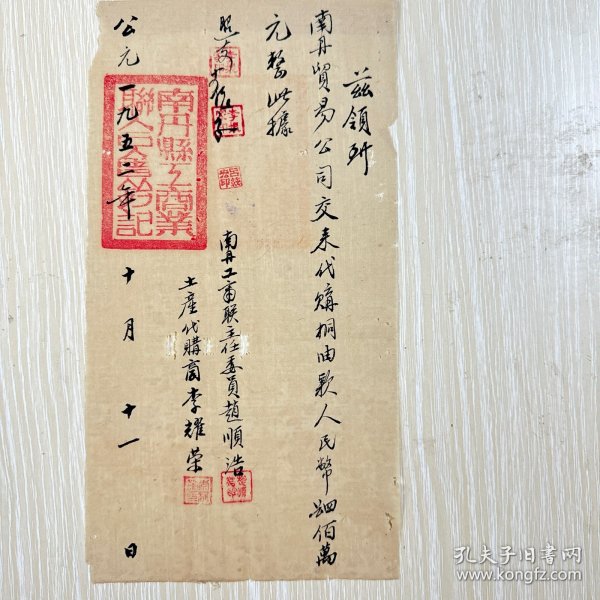 茲領到
南丹貿易公司交來代購桐油款人民幣肆佰萬
元整此據
南丹工商联主任委員趙順浩
土產代購商李耀荣
公元一九五二年十月十一日
南丹縣工商業
聯合會籌
記
孔夫子旧书网
www.kongfz.com